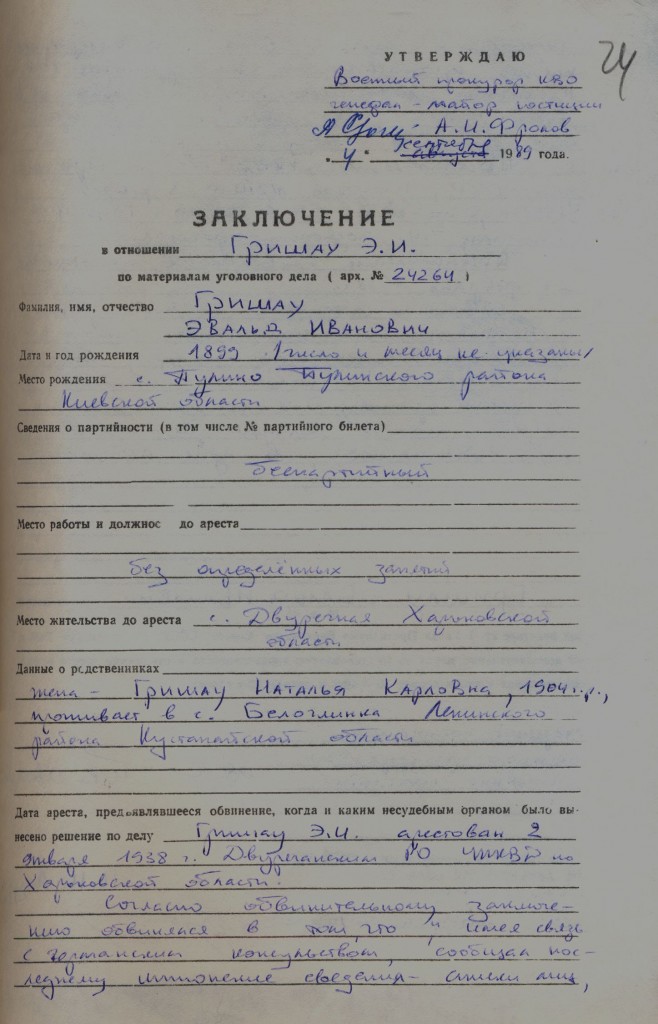 24
УТВЕРЖДАЮ
Военный прокурор КВО
генерал-майор юстиции
А.И. Фролов
"4" сентября августа 1989 года.
ЗАКЛЮЧЕНИЕ
в отношении Гришау Э.И.
по материалам уголовного дела ( арх. № 24264 )
Фамилия, имя, отчество Гришау
Эвальд Иванович
Дата и год рождения 1899 /число и месяц не указаны/
Место рождения с. Пулино Пулинского района
Киевской области
Сведения о партийности (в том числе № партийного билета)
беспартийный
Место работы и должнос до ареста
без определённых занятий
Место жительства до ареста с. Двуречная Харьковской
области
Данные о родственниках
жена - Гришау Наталья Карловна, 1904 г.р.,
проживает в с. Белоглинка Ленинского
района Кустанайской области
Дата ареста, предъявлявшееся обвинение, когда и каким несудебным органом было вы-
несено решение по делу Гришау Э.И. арестован 2
января 1938 г. Двуречанским РО УНКВД по
Харьковской области.
Согласно обвинительному заключе-
нию обвинялся в том, что „имея связь
с германским консульством, сообщал пос-
леднему шпионские сведения - списки лиц,